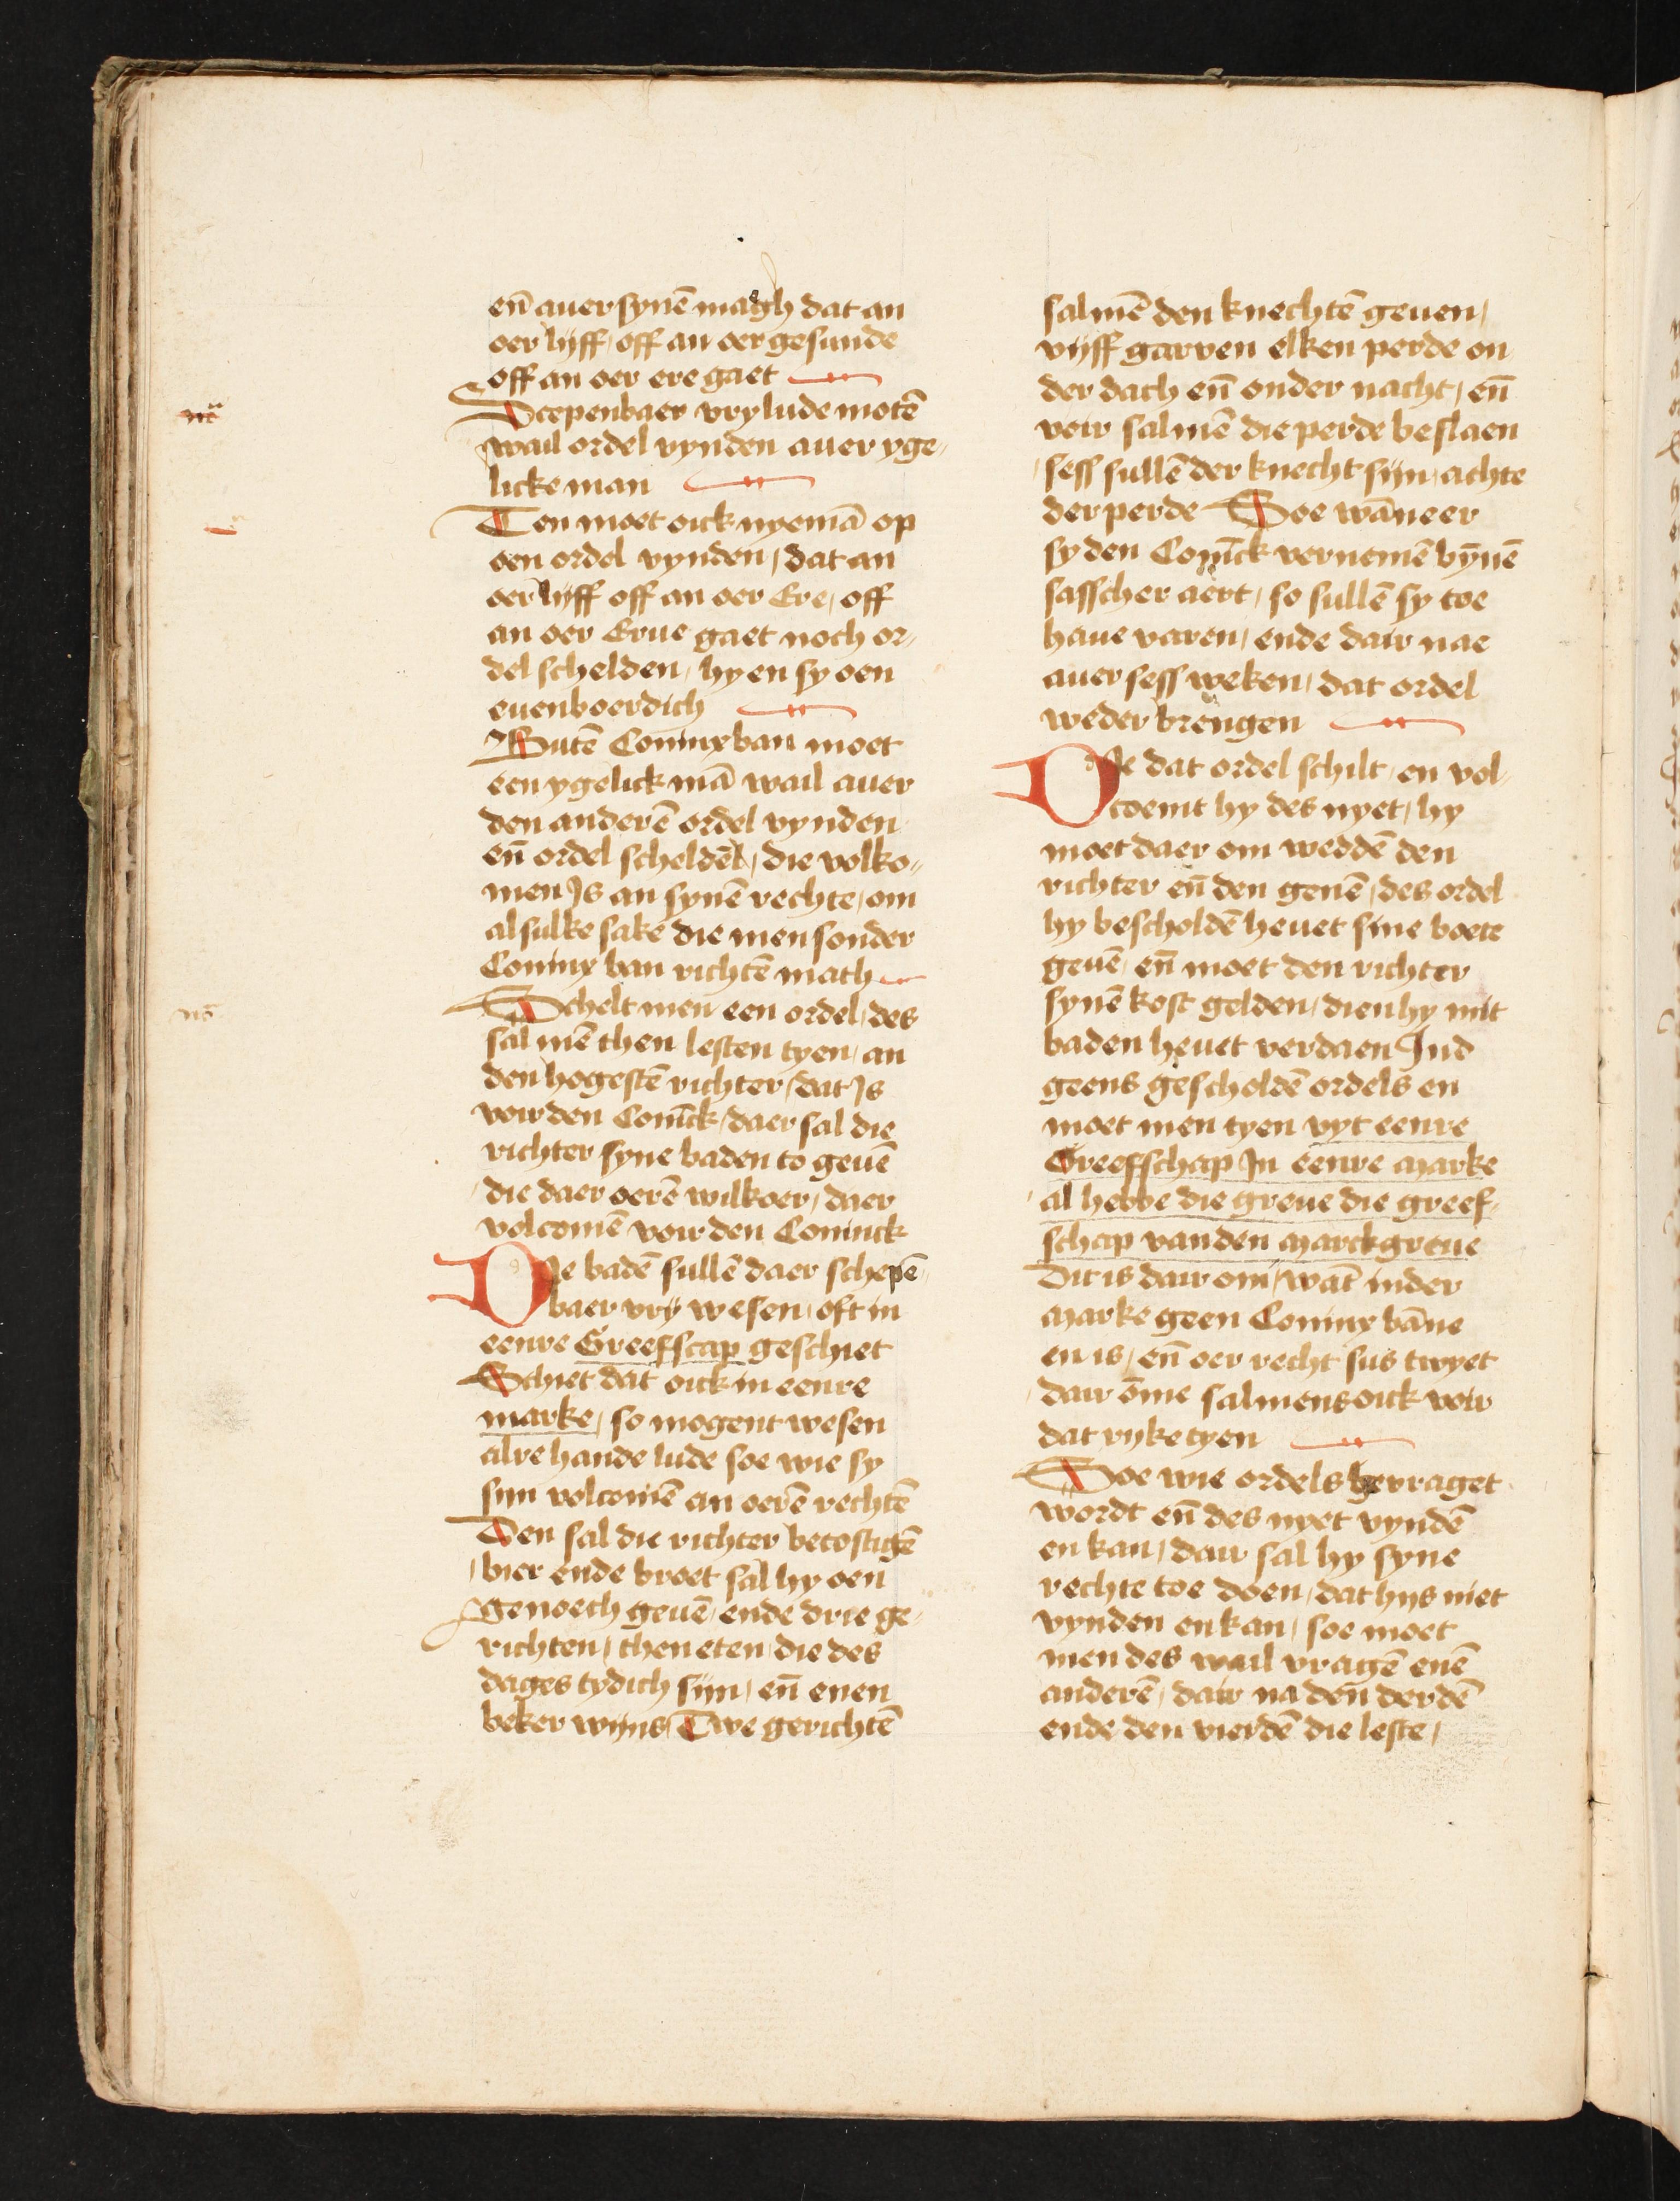 en̄ auer synē magh dat an
oer lijff / off an oer gesunde
off an oer ere gaet
Scepenbaer vry lude motē
wail ordel vynden auer yge„
licke man
Ten moet oick nyemā op
oen ordel vynden / dat an
oer lijff off an oer Ere / off
an oer Erue gaet noch or„
del schelden / hy en sy oen
euenboerdich
Butē Coninx ban moet
een ygelick mā wail auer
den anderē ordel vynden
en̄ ordel scheldē / die volko„
men Is an synē rechte / om
alsulke sake die men sonder
Coninx ban richtē mach
nō
Schelt men een ordel / des
sal mē then lesten tyen / an
den hogestē richter / dat Is
voir den Conīck / daer sal die
richter syne baden to geuē
die daer oerē wilkoer / daer
volcomē voir den Coninck
Die badē sullē daer schepē„
baer vrij wesen / oft in
eenre Greefscap geschiet
Schiet dat oick in eenre
marke / so mogent wesen
alre hande lude soe wie sy
sijn volcomē an oerē rechtē
Den sal die richter becostigē
bier ende broet sal hy oen
genoech geuē / ende drie ge„
richten / then eten / die des
dages tydich sijn / en̄ enen
beker wijns / Twe gerichtē
sal mē den knechtē geuen /
vijff garven elken perde on
der dach en̄ onder nacht / en̄
voir sal mē die perde beslaen
sess sullē der knecht sijn / achte
der perde Soe wāneer
sy den Conīck vernemē bȳnē
sasscher aert / so sullē sy toe
haue varen / ende dair nae
auer sess weken / dat ordel
weder brengen
Die dat ordel schilt / en vol„
coemt hy des nyet / hy
moet daer om weddē den
richter en̄ den genē / des ordel
hy bescholdē heuet sine boete
geuē / en̄ moet den richter
synē kost gelden / dien hy mit
baden heuet verdaen Ind
geens gescholdē ordels en
moet men tyen vyt eenre
Greefschap In eenre marke
al hebbe die greue die greef„
schap van den marckgreue
Dit is dair om / wāt in der
marke geen Coninx bāne
en is / en̄ oer recht sus twyet
dair ōme sal mens oick voir
dat rijke tyen
Soe wie ordels gevraget
wordt en̄ des nyet vyndē
en kan / dair sal hy syne
rechte toe doen / dat hijs niet
vynden en kan / soe moet
men des wail vragē enē
anderē / dair na den derdē
ende den vierdē die leste /